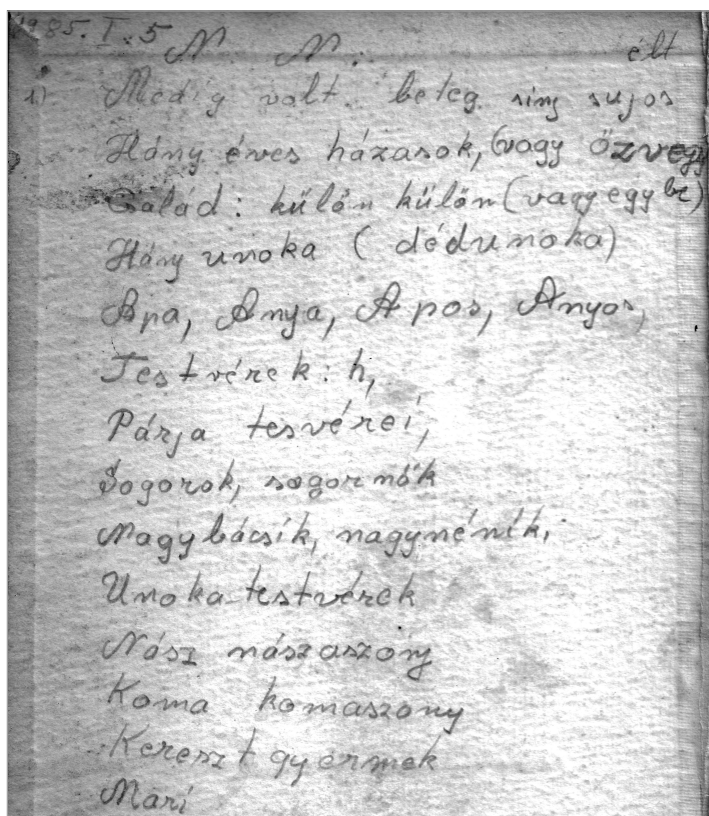 1985. I. 5 N. N. élt
1). Medig volt beteg sinj sujos
Hány éves házasok, (vagy özvegy
Család: külön külön (vagy egy be)
Hány unoka ( dédunoka)
Apa, Anya, Apos, Anyos,
Testvérek: h,
Párja tesvérei,
Sogorok, sogornők
Nagybácsík, nagynéník,
Unoka testvérek
Nász nászaszony
Koma komaszony
Kereszt gyermek
Mari